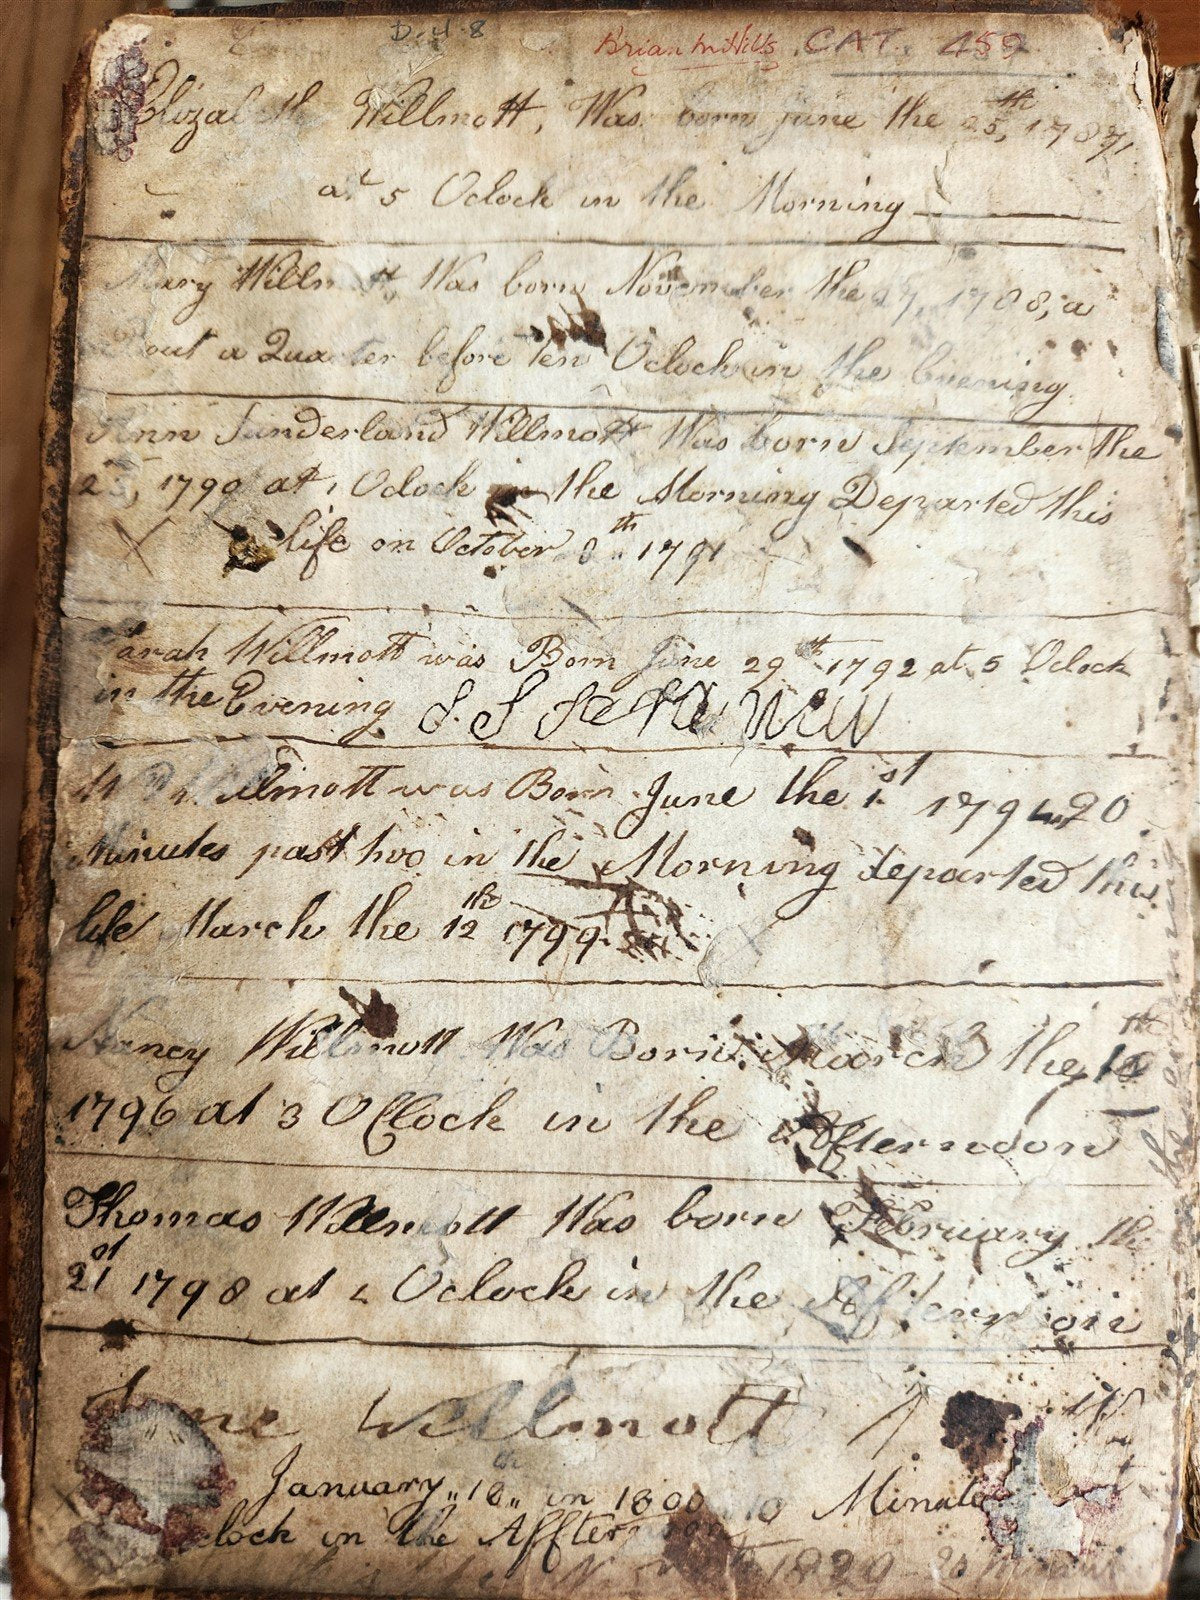 D.4.8 Brian Mills CAT. 459
Elizabeth Willmott, Was born June the 25,th 1787,
at 5 Oclock in the Morning
Mary Willmott Was born November the 27, 1788, a
bout a Quarter before ten Oclock in the Evening
Ann Sunderland Willmott Was born September the
25, 1790 at 1 Oclock in the Morning Departed this
life on October 8th 1791
Sarah Willmott was Born June 29th 1792 at 5 Oclock
in the Evening
Willmott was Born June the 1st 1794 20
Minutes past two in the Morning departed this
life March the 12th 1799
Nancy Willmott Was Born March the
1796 at 3 Ocllock in the Afternoon
Thomas Willmott Was born February the
21st 1798 at Oclock in the Afternoon
Willmott
January 18th in 1800 10 Minute
clock in the Affternoon
1829